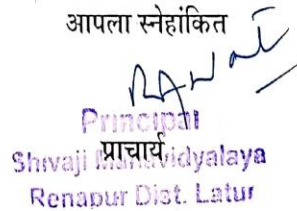 आपला स्नेहांकित
Principal
प्राचार्य
Shivaji Mahavidyalaya
Renapur Dist. Latur